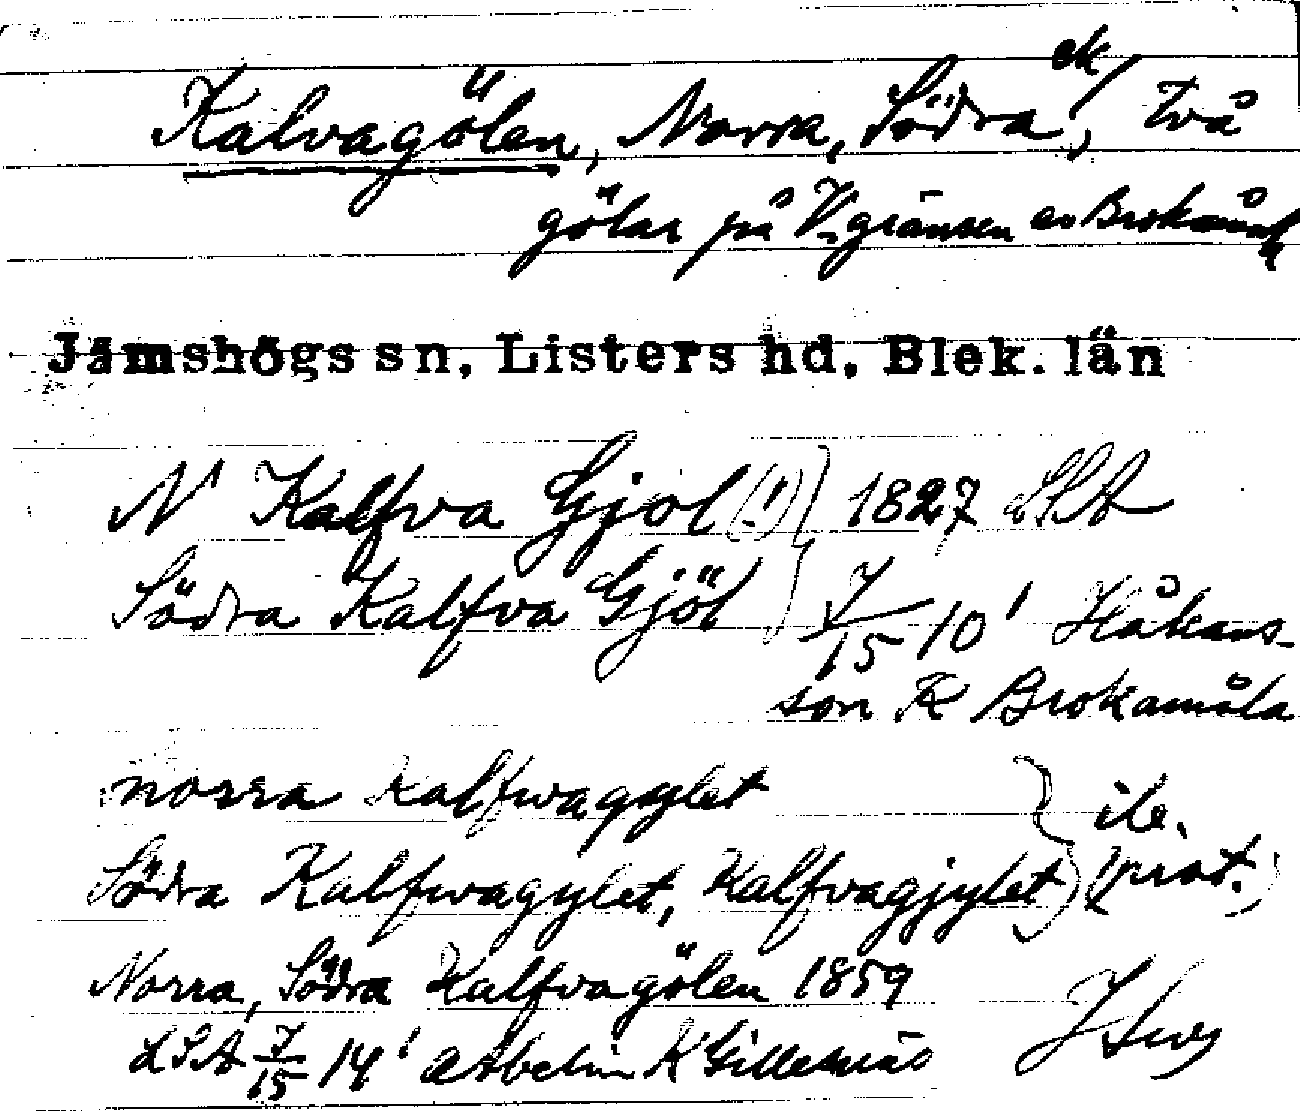 Kalvagölen, Norra, Södra ek, två
gölar på V. gränsen av Brokamåla
Jämshögs sn, Listers hd, Blek. län
N Kalfva Gjol (!) } 1827 LSA
Södra Kalfva Gjöl } J/15 10¹ Håkans-
son K Brokamåla
norra Kalfwagylet } ib.
Södra Kalfwagylet, Kalfvagjylet } (prot.)
Norra, Södra Kalfvagölen 1859
LSA J/15 14¹ K Gillesnäs